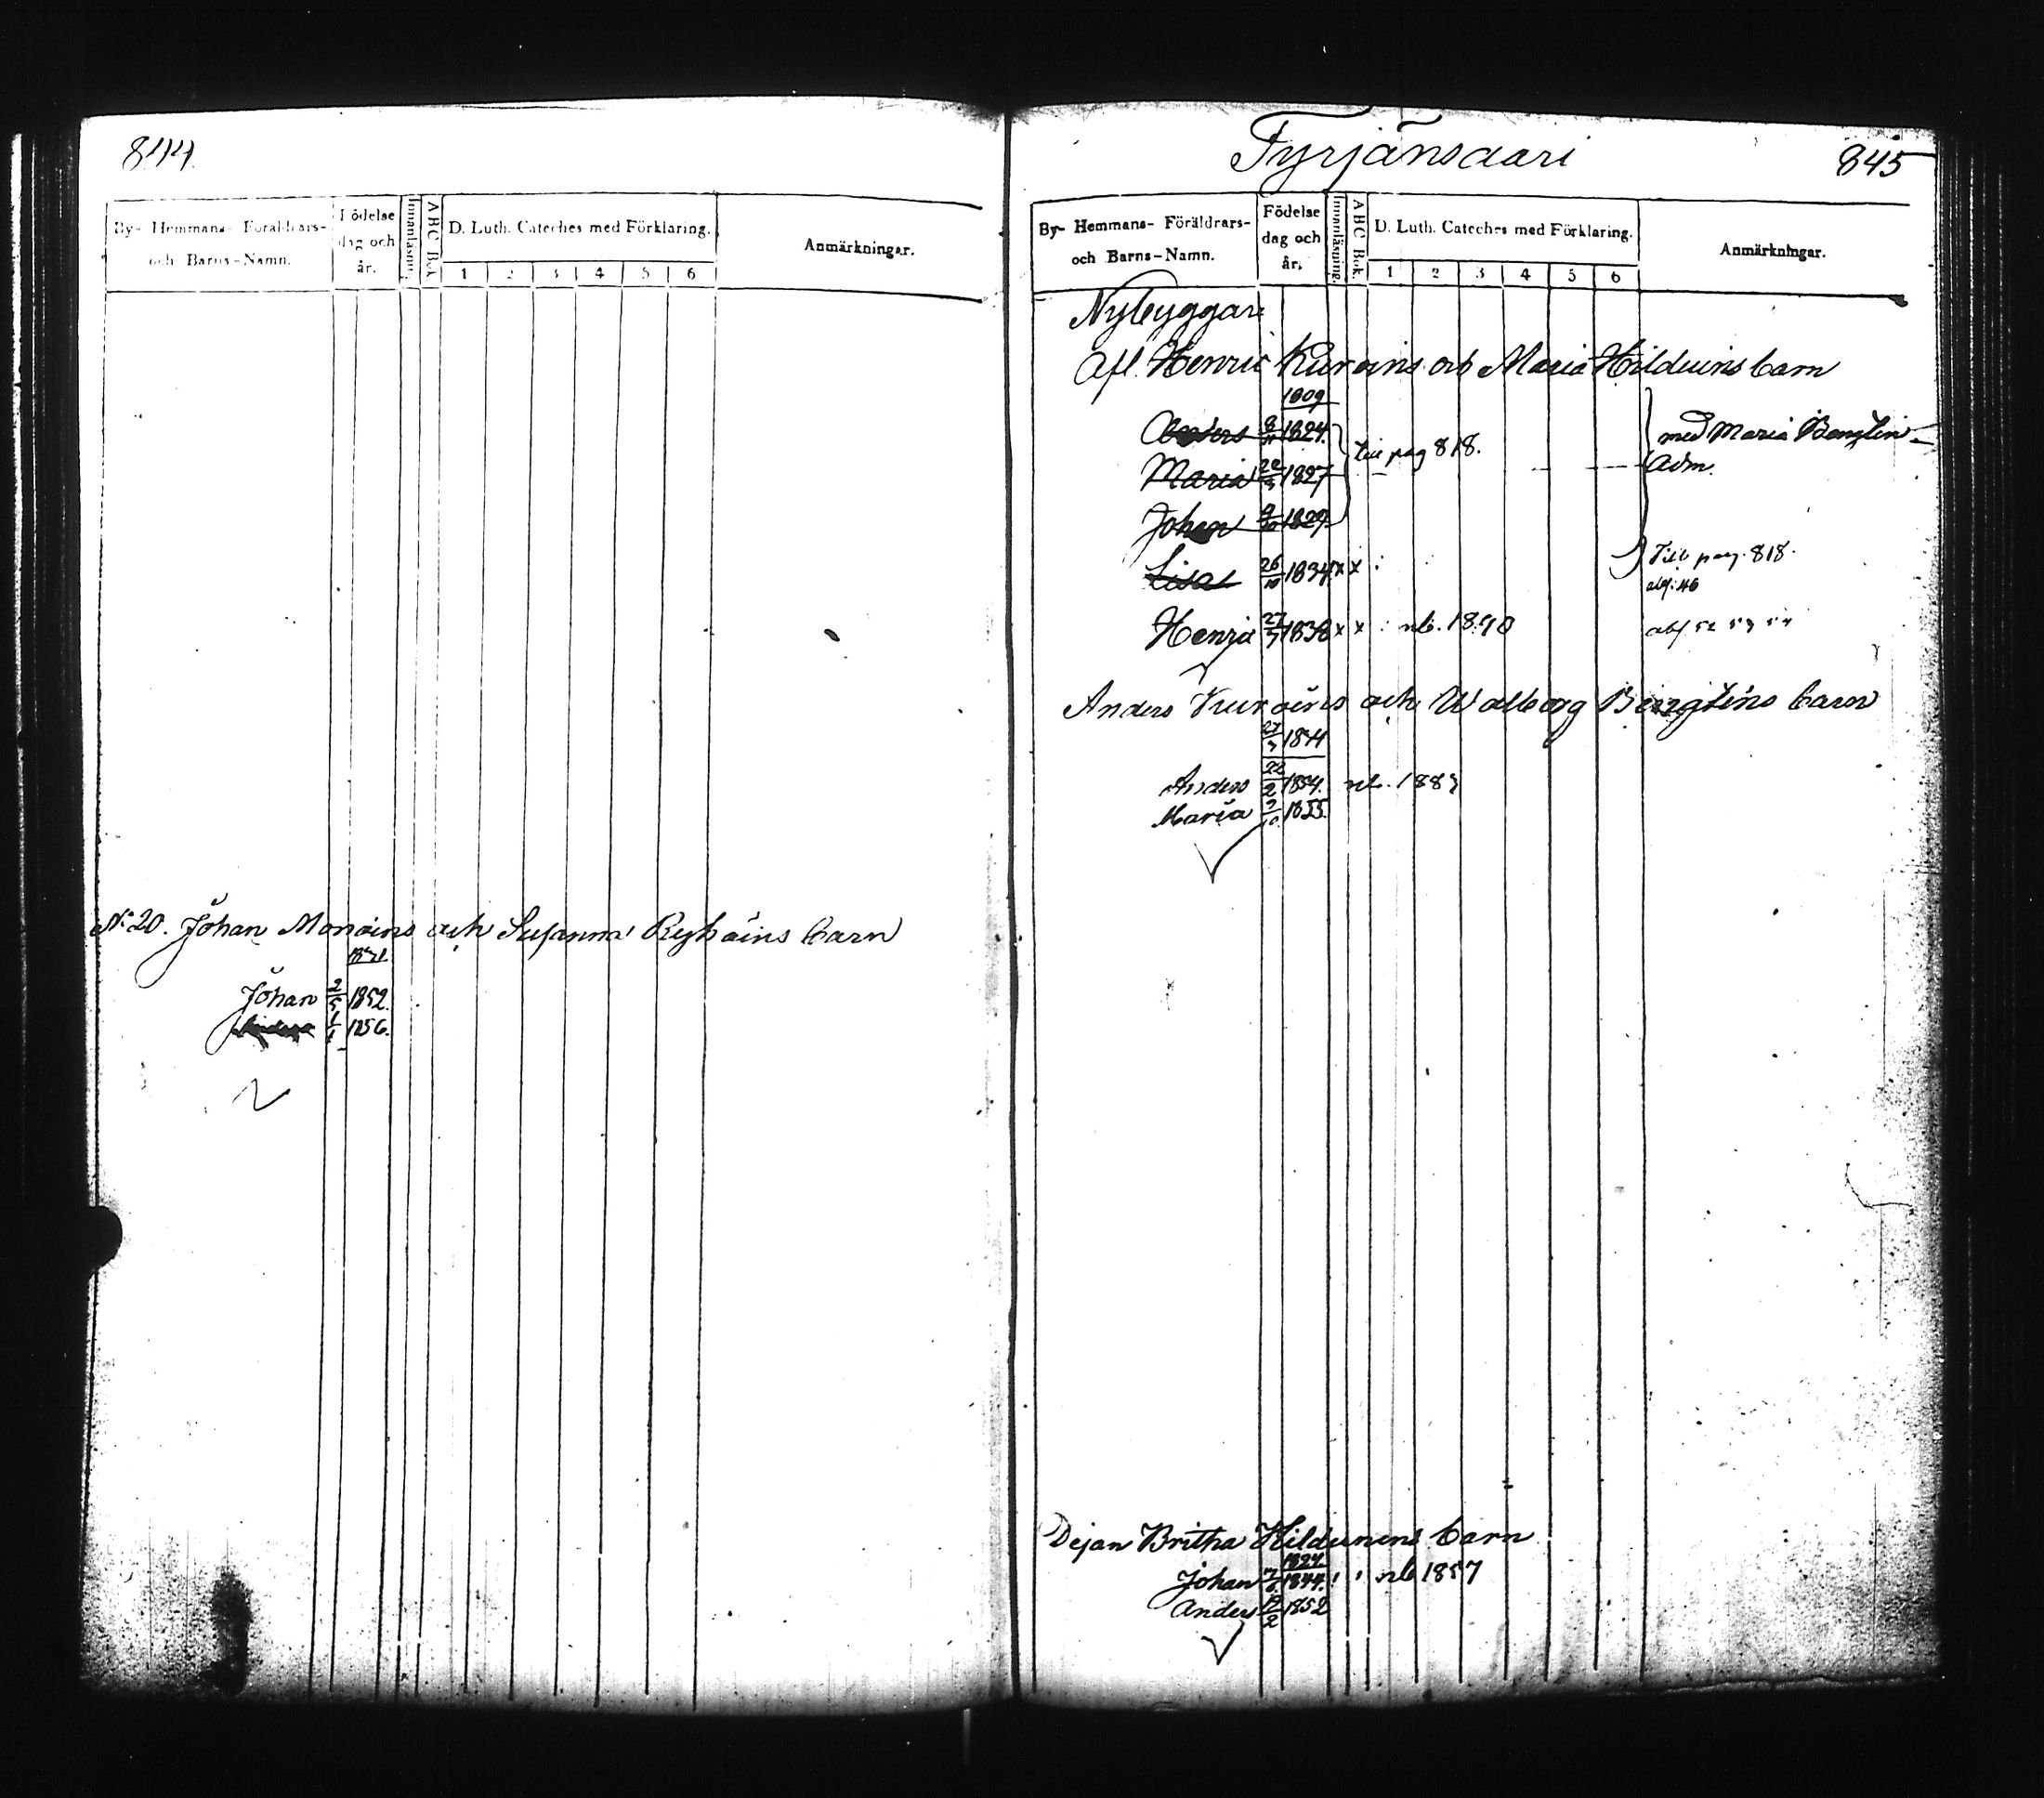 844
By- Hemmans- Föräldrars- och Barns-Namn.
Födelse dag och år.
Innanläsning.
ABC Bok.
D. Luth. Cateches med Förklaring.
1 2 3 4 5 6
Anmärkningar.
No 20. Johan Monoins och Susanna Ryhäins barn
Johan 2/5 1852.
1856.
Tyrjänsaari
845
By- Hemmans- Föräldrars- och Barns-Namn.
Födelse dag och år.
Innanläsning.
ABC Bok.
D. Luth. Cateches med Förklaring.
1 2 3 4 5 6
Anmärkningar.
Nybyggare
Afl. Henric Kuroins och Maria Hilduins barn
1809
Anders 1824. pag 818. med Maria Bengtin
Maria 1827 Adm.
Johan 1829
Lisa 26/10 1834 x x Till pag. 818.
abf. 46
Henric 27/7 1838 x x abf 52 53 54
Anders Kuroins och Walborg Bengtins barn
1844
Anders 22/2 1854.
Maria 1855.
Dejan Britha Hildunens barn
1824.
Johan 1844. 1857
Anders 1852